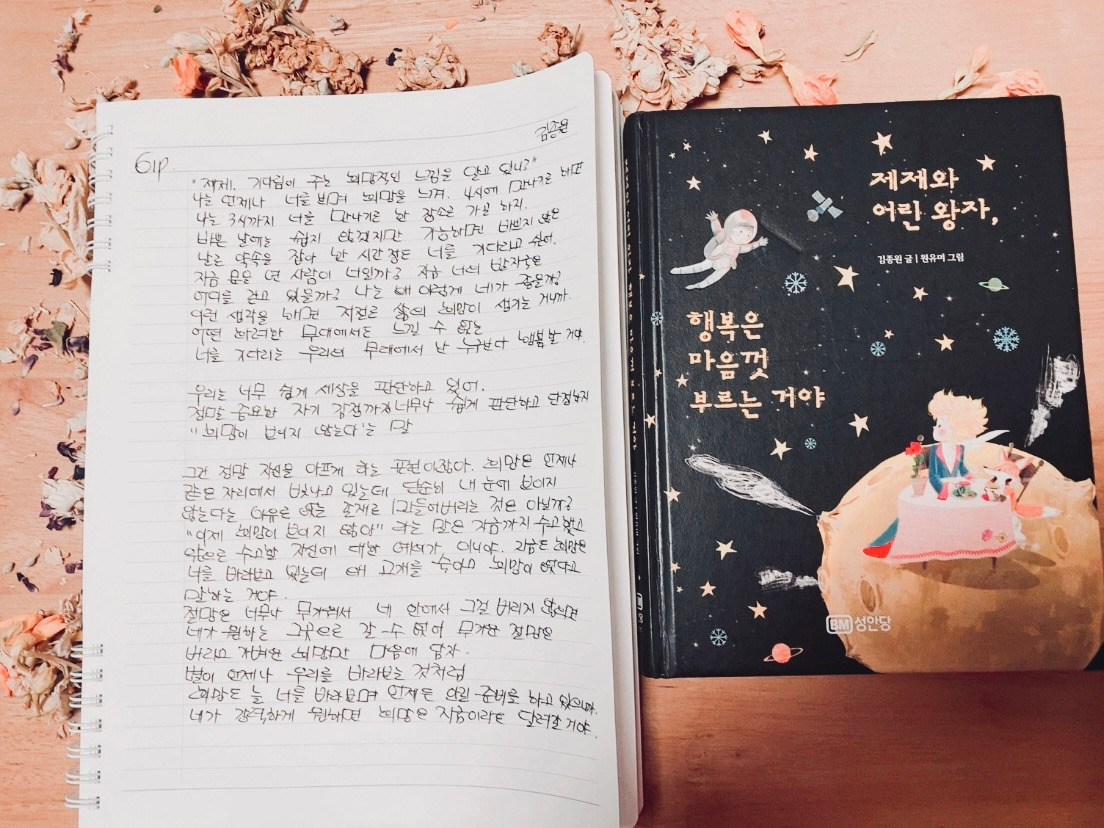 김종원
61p.
"제제, 기다림이 주는 희망적인 느낌을 알고 있니?"
나는 언제나 너를 보며 희망을 느껴. 4시에 만나기로 하면
나는 3시까지 너를 만나기로 한 장소로 가곤 하지.
바쁜 날에는 쉽지 않겠지만 가능하면 바쁘지 않은
날로 약속을 잡아 한 시간 정도 너를 기다리고 싶어.
지금 문을 연 사람이 너일까? 지금 너의 발자국은
어디를 걷고 있을까? 나는 왜 이렇게 네가 좋을까?
이런 생각을 하면 저절로 삶의 희망이 생기는 거니까.
어떤 화려한 무대에서도 느낄 수 없는
너를 기다리는 우리의 무대에서 난 누구보다 행복할 거야.
우리는 너무 쉽게 세상을 판단하고 있어.
정말 중요한 자기 감정까지 너무나 쉽게 판단하고 단정하지
"희망이 보이지 않는다"는 말
그건 정말 자신을 아프게 하는 표현이잖아. 희망은 언제나
같은 자리에서 빛나고 있는데 단순히 내 눈에 보이지
않는다는 이유로 없는 존재로 만들어버리는 것은 아닐까?
"이제 희망이 보이지 않아" 라는 말은 지금까지 수고했고
앞으로 수고할 자신에 대한 예의가 아니야. 지금도 희망은
너를 바라보고 있는데 왜 고개를 숙이고 희망이 없다고
말하는 거야.
절망은 너무나 무거워서 네 안에서 그걸 버리지 않으면
네가 원하는 그곳으로 갈 수 없어 무거운 절망은
버리고 가벼운 희망만 마음에 담자.
별이 언제나 우리를 바라보는 것처럼
희망도 늘 너를 바라보며 언제든 안길 준비를 하고 있으니까.
네가 강력하게 원하면 희망은 지금이라도 달려갈 거야.
제제와
어린 왕자,
김종원 글 | 원유미 그림
행복은
마음껏
부르는 거야
BM 성안당